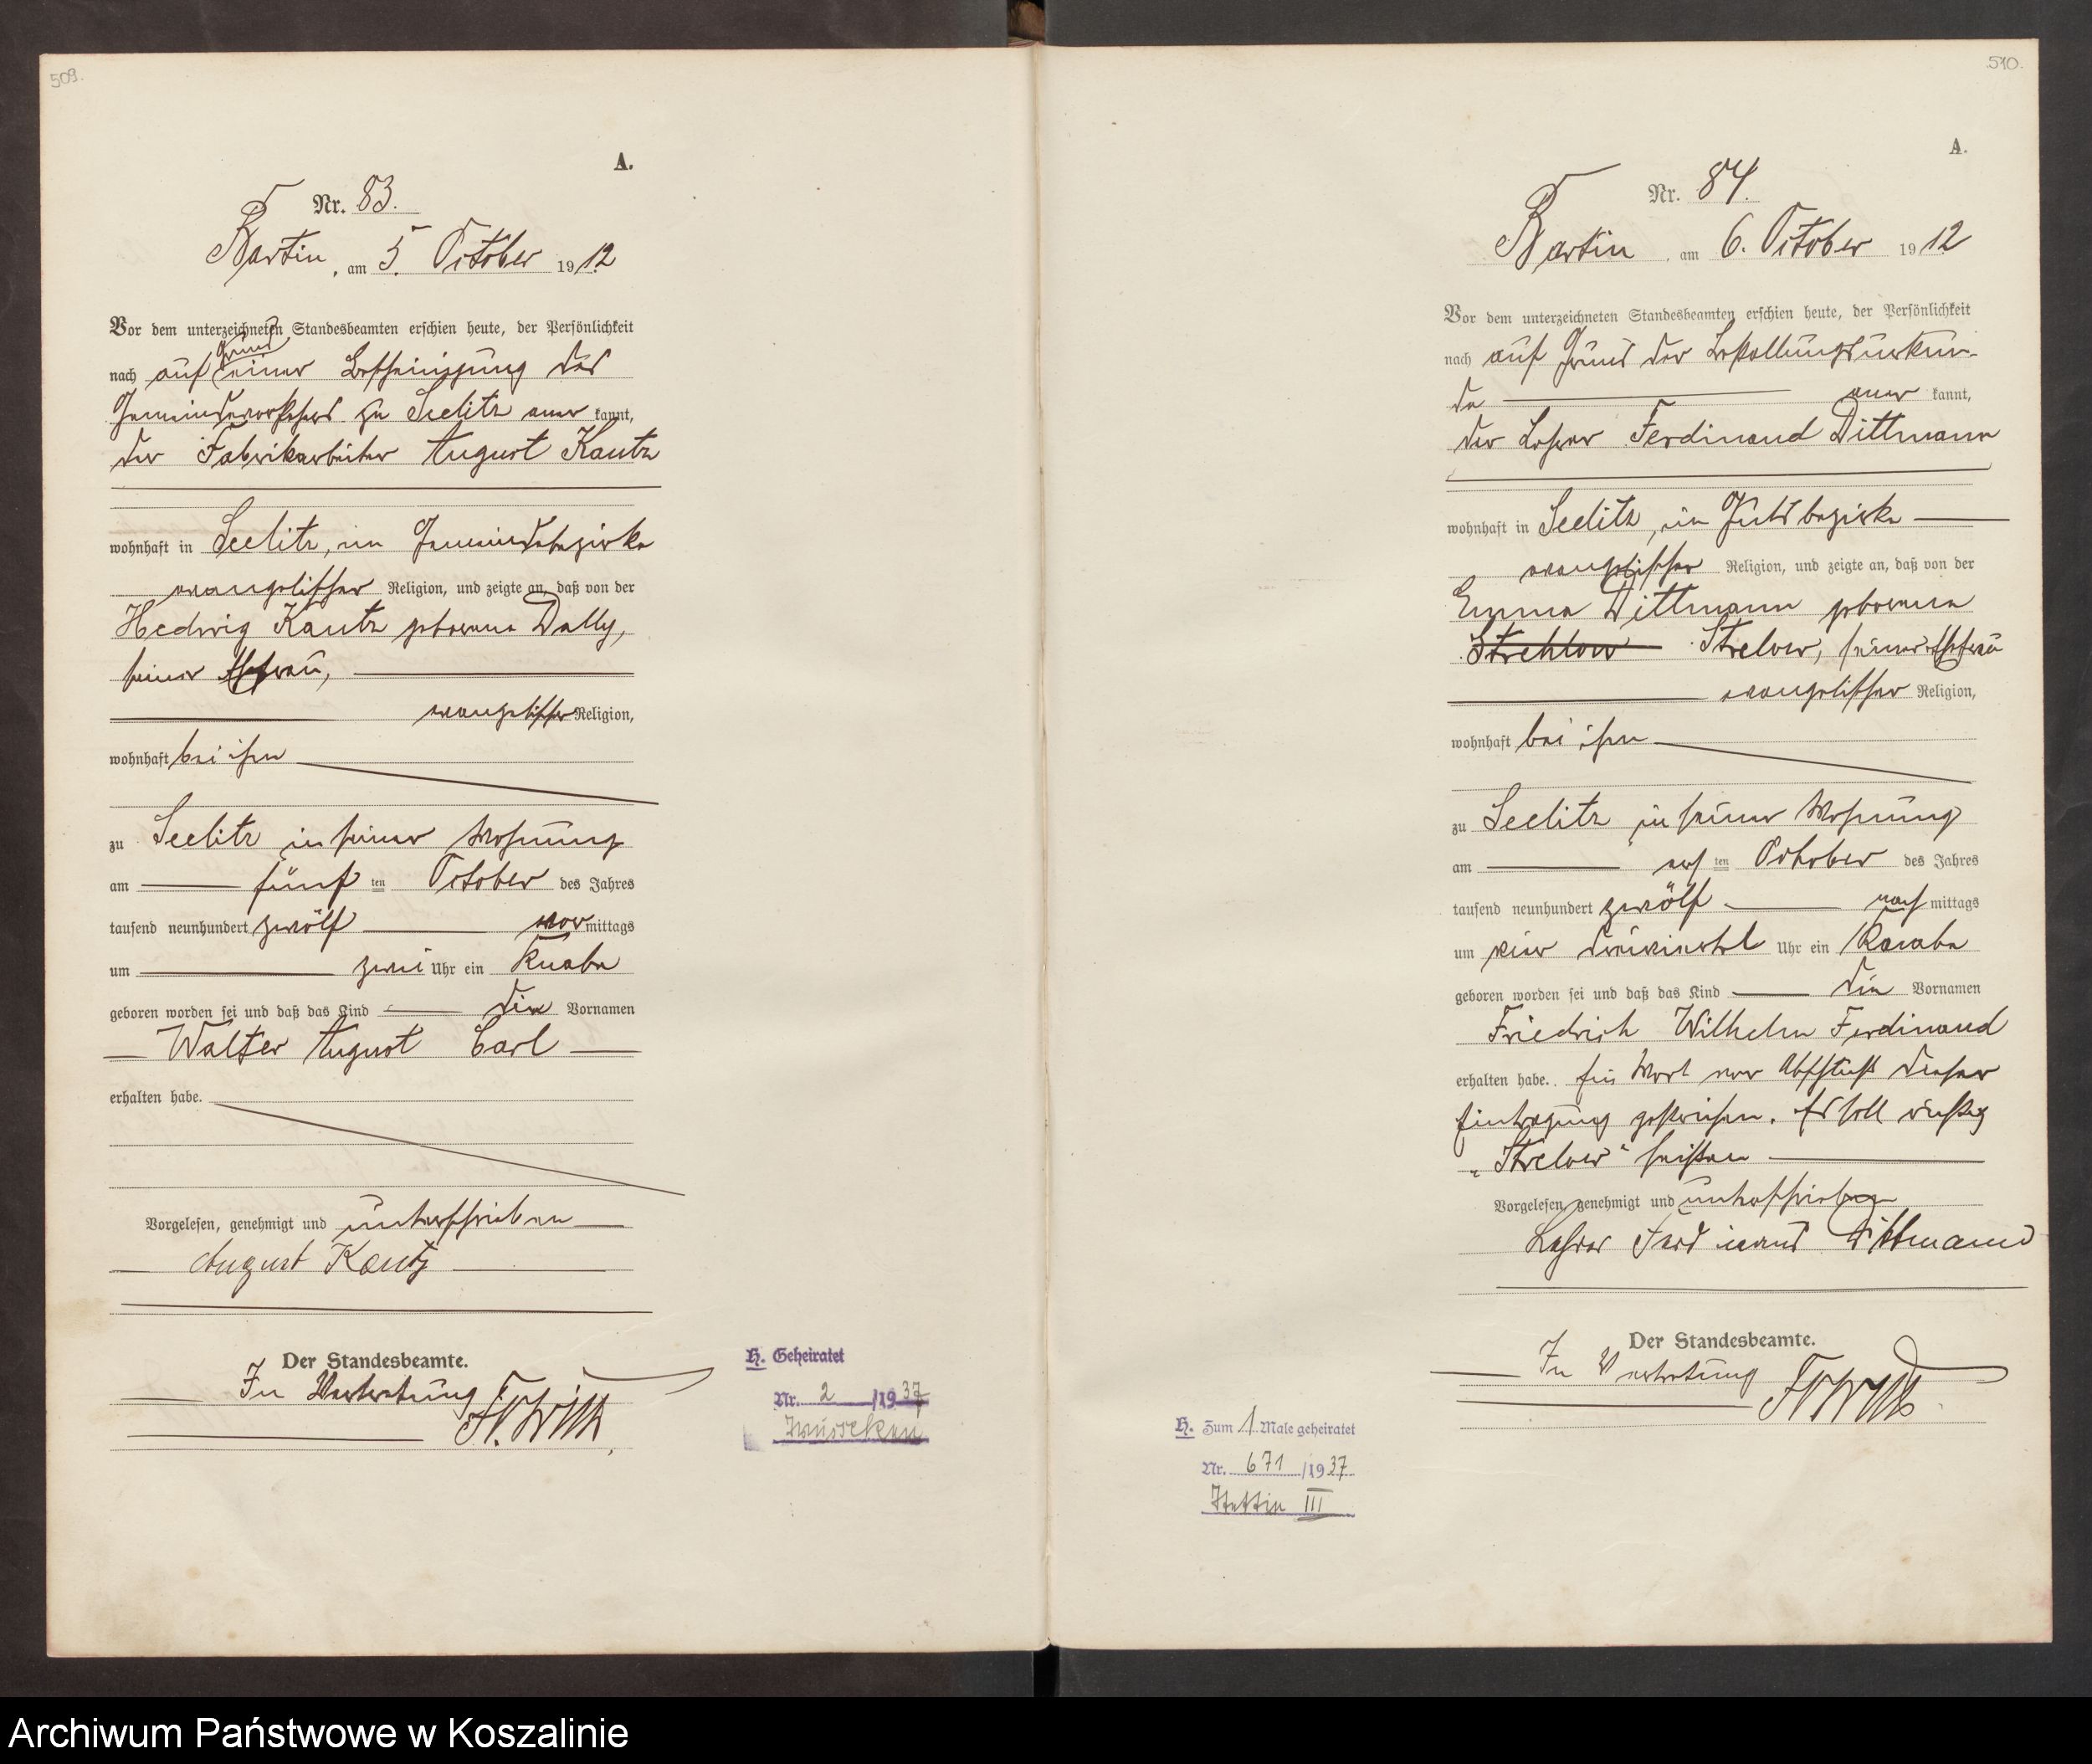 509.
A.
Nr. 83.
Bartin, am 5. October 1912
Vor dem unterzeichneten Standesbeamten erschien heute, der Persönlichkeit
Grund
nach auf einer Bescheinigung des
Gemeindevorstehers zu Seelitz aner kannt,
der Fabrikarbeiter August Kautz
wohnhaft in Seelitz, im Gemeindebezirke
evangelischer Religion, und zeigte an, daß von der
Hedwig Kautz geborene Dally,
seiner Ehefrau,
evangelischer Religion,
wohnhaft bei ihm
zu Seelitz in seiner Wohnung
am fünf ten October des Jahres
tausend neunhundert zwölf vormittags
um zwei Uhr ein Knabe
geboren worden sei und daß das Kind die Vornamen
Walter August Carl
erhalten habe.
Vorgelesen, genehmigt und unterschrieben
August Kautz
Der Standesbeamte.
In Vertretung
H. Geheiratet
Nr. 2 /1937
Wussekow
510.
A.
Nr. 84.
Bartin, am 6. October 1912
Vor dem unterzeichneten Standesbeamten erschien heute, der Persönlichkeit
nach auf Grund der Bestallungsurkun-
de aner kannt,
der Lehrer Ferdinand Dittmann
wohnhaft in Seelitz, im Gutsbezirke
evangelischer Religion, und zeigte an, daß von der
Emma Dittmann geborene
Strehlow Strelow, seiner Ehefrau
evangelischer Religion,
wohnhaft bei ihm
zu Seelitz in seiner Wohnung
am ten October des Jahres
tausend neunhundert zwölf nachmittags
um vier dreiviertel Uhr ein Knabe
geboren worden sei und daß das Kind die Vornamen
Friedrich Wilhelm Ferdinand
erhalten habe. Ein Wort vor Abschluß dieser
Eintragung gestrichen. Es soll richtig
„Strelow“ heißen
Vorgelesen, genehmigt und unterschrieben
Lehrer Ferdinand Dittmann
Der Standesbeamte.
In Vertretung
H. Zum 1. Male geheiratet
Nr. 671 /1937
Stettin III
Archiwum Państwowe w Koszalinie